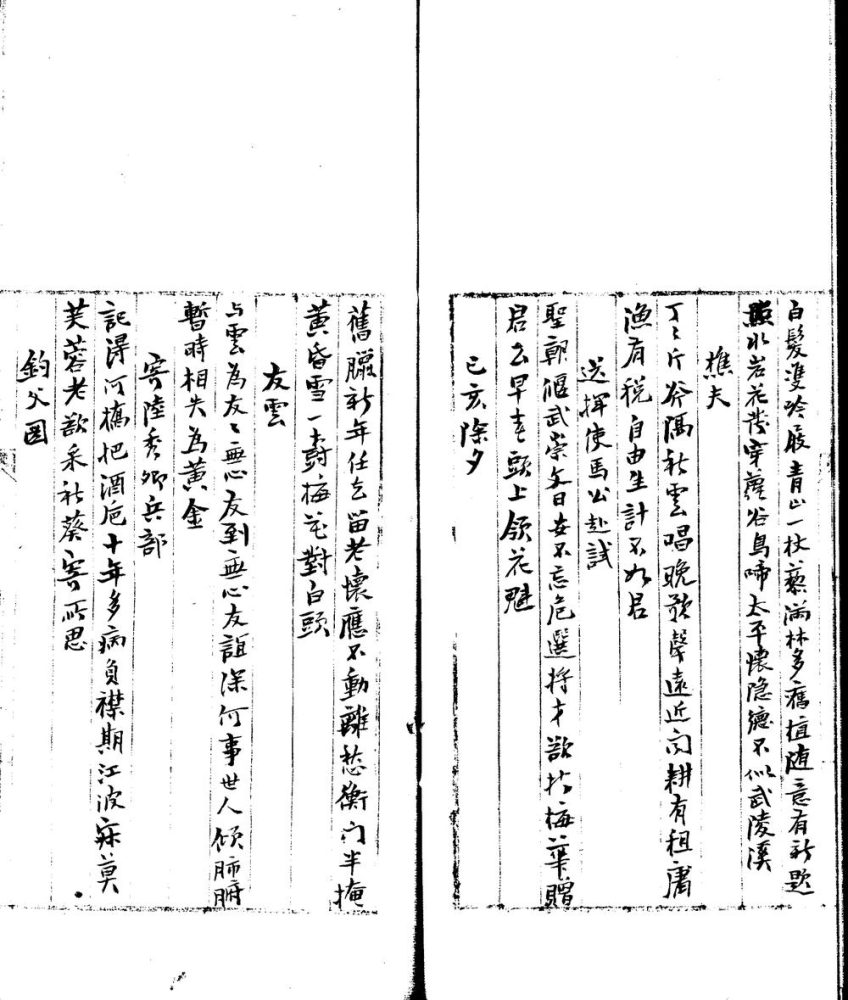 白髮雙吟屐青山一杖藜滿林多舊植随意有新題
照水岩花發穿蘿谷鳥啼太平懷隐德不似武陵溪
樵夫
丁〻斤斧隔秋雲唱晚歌聲遠近聞耕有租庸
漁有税自由生計不如君
送揮使馬公赴試
聖朝偃武崇文日安不忘危選將才欲折梅華贈
君去早春頭上領花魁
己亥除夕
舊臘新年任去留老懷應不動離愁衡门半掩
黄昏雪一樹梅花對白頭
友雲
与雲為友〻無心友到無心友誼深何事世人傾肺腑
暫時相失為黄金
寄陸秀卿兵部
記得河橋把酒巵十年多病負襟期江波寂莫
芙蓉老欲采秋葵寄所思
釣父图